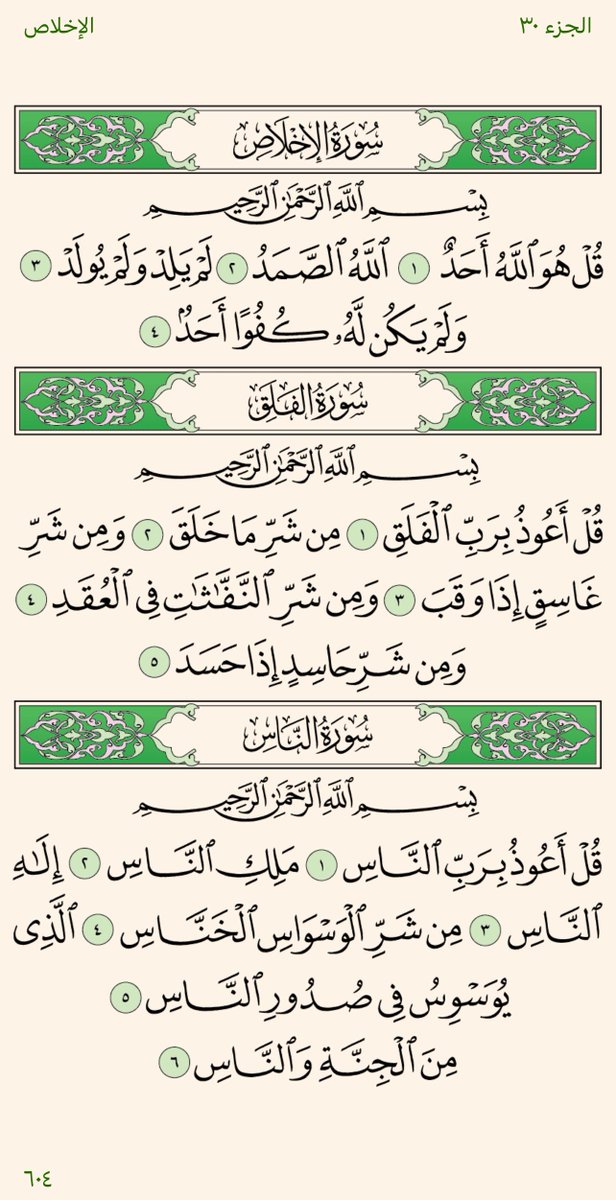 الجزء ٣٠ الإخلاص
سُورَةُ الإِخْلَاصِ
بِسْمِ ٱللَّهِ ٱلرَّحْمَٰنِ ٱلرَّحِيمِ
قُلْ هُوَ ٱللَّهُ أَحَدٌ ١ ٱللَّهُ ٱلصَّمَدُ ٢ لَمْ يَلِدْ وَلَمْ يُولَدْ ٣
وَلَمْ يَكُن لَّهُۥ كُفُوًا أَحَدٌۢ ٤
سُورَةُ الفَلَقِ
بِسْمِ ٱللَّهِ ٱلرَّحْمَٰنِ ٱلرَّحِيمِ
قُلْ أَعُوذُ بِرَبِّ ٱلْفَلَقِ ١ مِن شَرِّ مَا خَلَقَ ٢ وَمِن شَرِّ
غَاسِقٍ إِذَا وَقَبَ ٣ وَمِن شَرِّ ٱلنَّفَّٰثَٰتِ فِى ٱلْعُقَدِ ٤
وَمِن شَرِّ حَاسِدٍ إِذَا حَسَدَ ٥
سُورَةُ النَّاسِ
بِسْمِ ٱللَّهِ ٱلرَّحْمَٰنِ ٱلرَّحِيمِ
قُلْ أَعُوذُ بِرَبِّ ٱلنَّاسِ ١ مَلِكِ ٱلنَّاسِ ٢ إِلَٰهِ
ٱلنَّاسِ ٣ مِن شَرِّ ٱلْوَسْوَاسِ ٱلْخَنَّاسِ ٤ ٱلَّذِى
يُوَسْوِسُ فِى صُدُورِ ٱلنَّاسِ ٥
مِنَ ٱلْجِنَّةِ وَٱلنَّاسِ ٦
٦٠٤